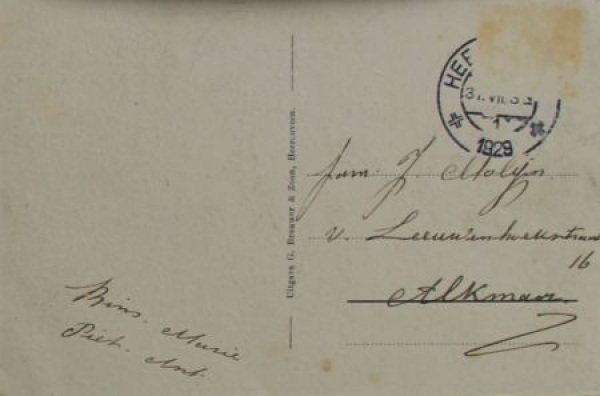 HEE
31.VII.3
1
1929
fam. J. Molijn
v. Leeuwenhoekstraat
16
Alkmaar.
Uitgave G. Brouwer & Zoon, Heerenveen.
Wins. Marie
Piet. Ant.